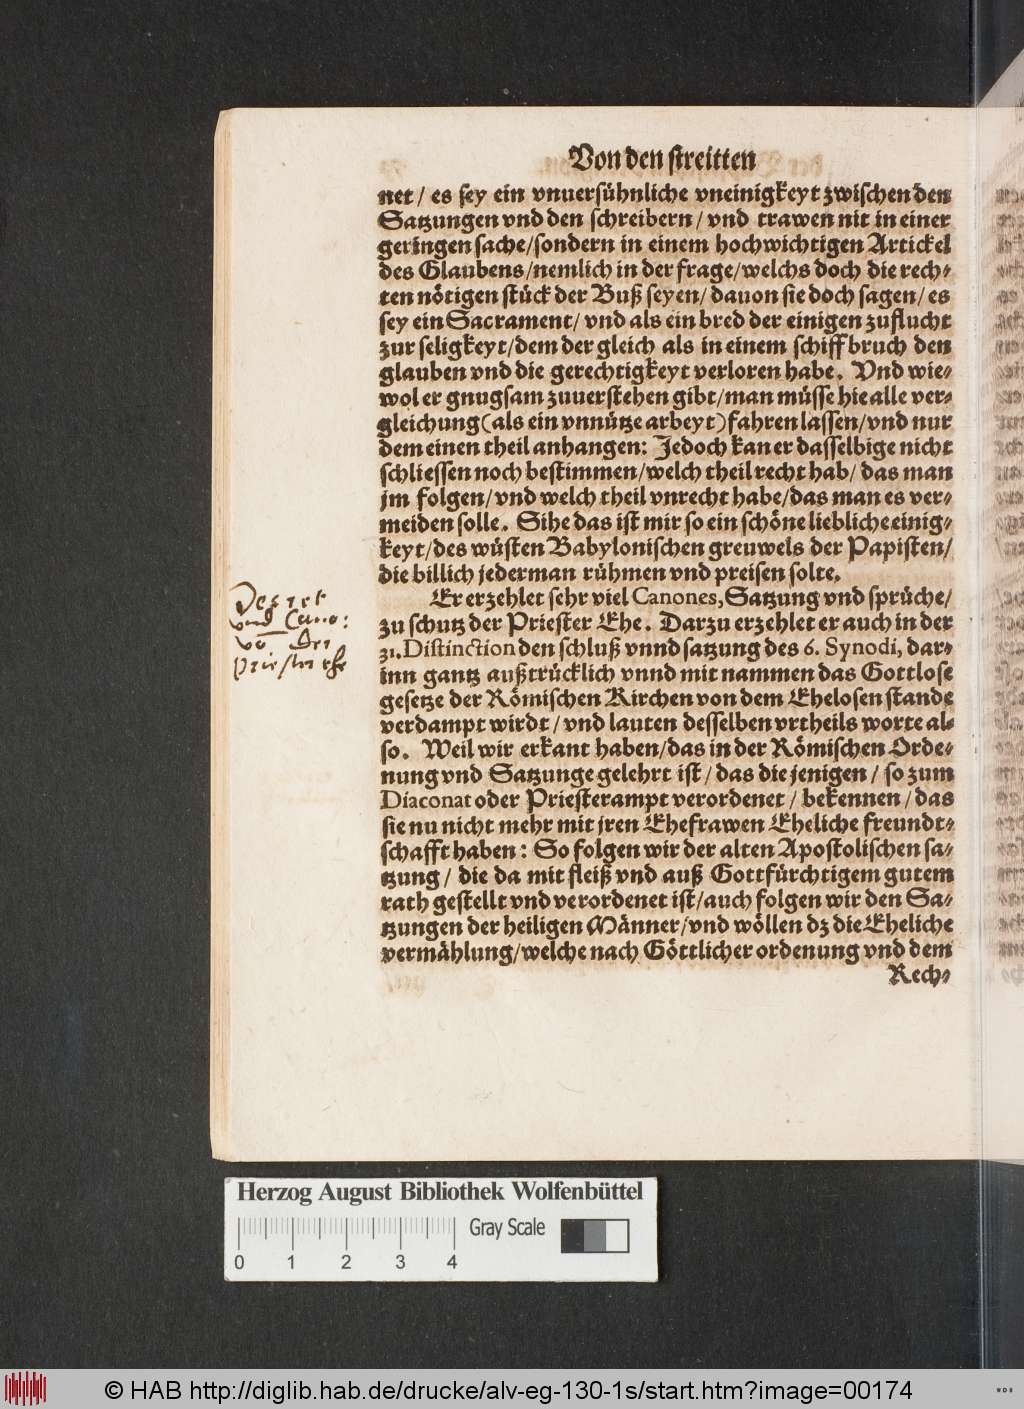 Von den streitten
net / es sey ein vnuersühnliche vneinigkeyt zwischen den
Satzungen vnd den schreibern / vnd trawen nit in einer
geringen sache/sondern in einem hochwichtigen Artickel
des Glaubens/nemlich in der frage/welchs doch die rech-
ten nötigen stück der Buß seyen/ dauon sie doch sagen/ es
sey ein Sacrament/ vnd als ein bred der einigen zuflucht
zur seligkeyt/dem der gleich als in einem schiffbruch den
glauben vnd die gerechtigkeyt verloren habe. Vnd wie-
wol er gnugsam zuuerstehen gibt/man müsse hie alle ver-
gleichung (als ein vnnütze arbeyt) fahren lassen/vnd nur
dem einen theil anhangen: Jedoch kan er dasselbige nicht
schliessen noch bestimmen/welch theil recht hab/ das man
jm folgen/vnd welch theil vnrecht habe/das man es ver-
meiden solle. Sihe das ist mir so ein schöne liebliche einig-
keyt/des wüsten Babylonischen greuwels der Papisten/
die billich jederman rühmen vnd preisen solte.
Er erzehlet sehr viel Canones, Satzung vnd sprüche/
zu schutz der Priester Ehe. Darzu erzehlet er auch in der
31. Distinction den schluß vnnd satzung des 6. Synodi, dar-
inn gantz außtrücklich vnnd mit nammen das Gottlose
gesetze der Römischen Kirchen von dem Ehelosen stande
verdampt wirdt / vnd lauten desselben vrtheils worte al-
so. Weil wir erkant haben/das in der Römischen Orde-
nung vnd Satzunge gelehrt ist / das die jenigen / so zum
Diaconat oder Priesterampt verordenet / bekennen / das
sie nu nicht mehr mit jren Ehefrawen Eheliche freundt-
schafft haben: So folgen wir der alten Apostolischen sa-
tzung / die da mit fleiß vnd auß Gottfürchtigem gutem
rath gestellt vnd verordenet ist/auch folgen wir den Sa-
tzungen der heiligen Männer/vnd wöllen dz die Eheliche
vermählung/welche nach Göttlicher ordenung vnd dem
Rech-
Decret
vnd Cano:
vō der
Priester ehe
Herzog August Bibliothek Wolfenbüttel
Gray Scale
0 1 2 3 4
© HAB http://diglib.hab.de/drucke/alv-eg-130-1s/start.htm?image=00174